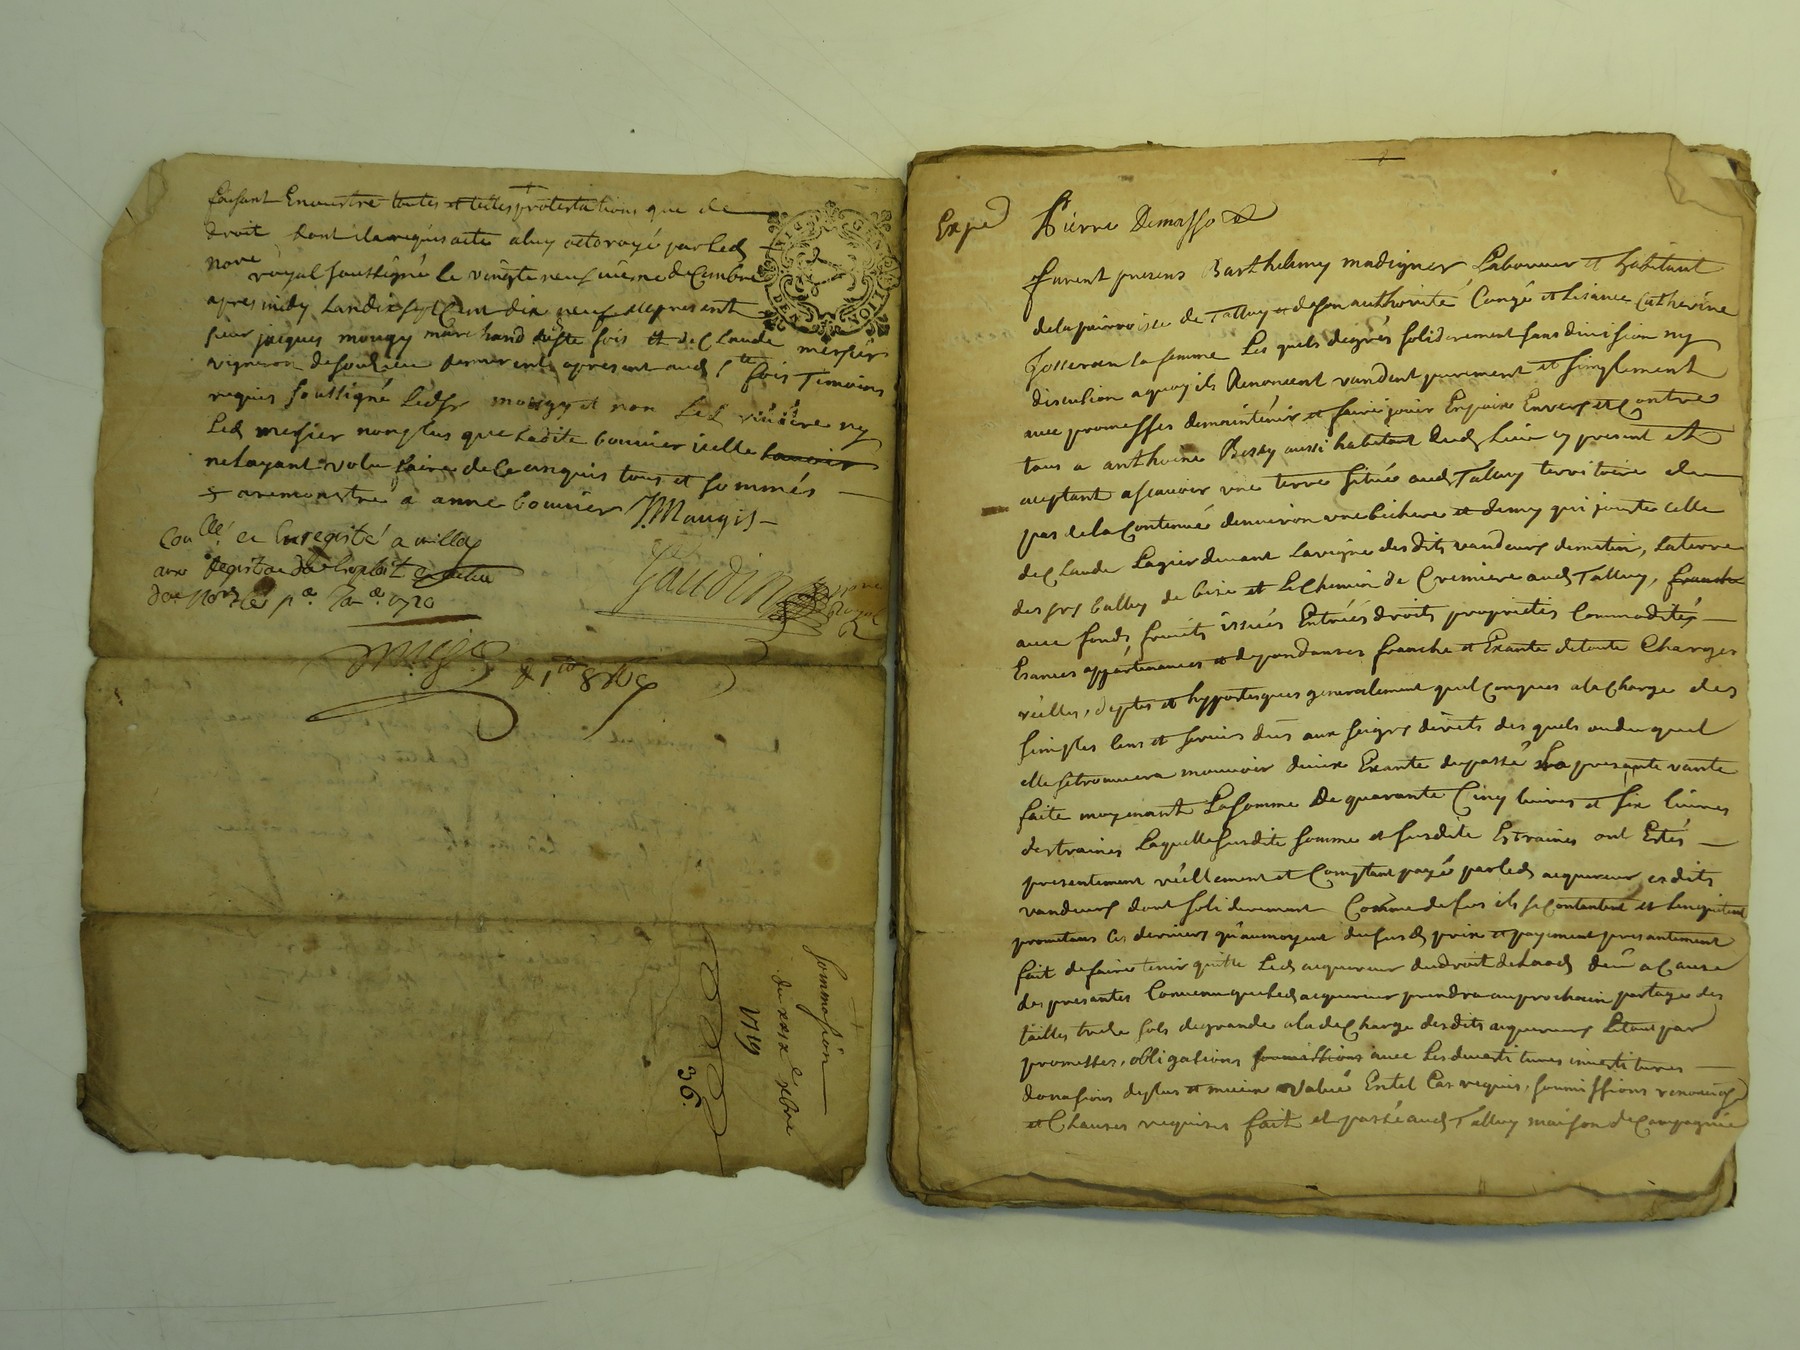 faisant Enoustre toutes et telles protestations que de
droit dont il a requis acte a luy octroyé par led
no.re royal soussigné le vingte neuf uiesme decembre
apres midy Lan dix sept Cent dix neuf present
sieur jacques mougy marchand fois et de Claude mersier
vigneron de apresent aud fois Temoins
requis soussigné Ledsr mougy et non ny
Led mersier non plus que Ladite bouuier icelle
nelayant volu faire de Ce enquis tous et sommés
a remonstre a anne bouuier JMougis
Con.llé et Enregistré a millery
aux
1720
Gaudin no.re Royal
R 8s 1d
Sommasion
du xxix xbre
1719
36.
Expé
Pierre Demasso
furent presens Barthelemy madignier Laboureur et habitant
de la parroisse de Talluy et de son authorité Congé et Lisance Catherine
Josseran sa femme Les quels degrés soliderement sans diuision ny
discution a quoy ils Renoncent vandent purement et simplement
auec promesses de maintenir et faire jouir En paix Enuers et Contre
tous a anthoine Bessy aussi habitant dud Lieu cy present et
aceptant ascauoir vne terre situé aud Talluy territoire de
pas de la Contenué denuiron vne bichere et demy qui jouste celle
de Claude Lagier deuant La vigne des dits vandeurs de matin, La terre
des srs balley de bise et Le Chemin de Cremiere aud Talluy, franche
auec fonds fruits issuës Entrées droits proprietés Commodités
Esances appartenances et dependances franche et Exante de toute Charges
vieilles, deptes et hyppotesques generalement quel Conques a la Charge des
simples Cens et seruis dus aux seigrs direcls des quels ou du quel
elle se trouuera mouuoir diceux Exante du passé La presante vante
faite moyenant La somme De quarante Cinq liures et six liures
destraines Laquelle susdite somme et susdite Estraines ont Estés
presentement réellement et Comptant payé par led acquereur esdits
vandeurs dont soliderement Comme de fois ils se Contentent et Lenquitent
promettans Ces derniers qu'au moyent du susd prix et payement presantement
fait de faire tenir quitte Led acquereur du droit de Laods deu a Cause
des presantes Conuenu que Led acquereur prendra au prochain partage des
tailles sols de grande a la de Charge desdits Le tout par
promesses, obligations soumissions auec Les deuesti tures inuesti tures
donasions de plus et mieux Valué En tel Cas requis, soumissions renonciaons
et Clauses requises fait et passé aud Talluy maison de Campagnie